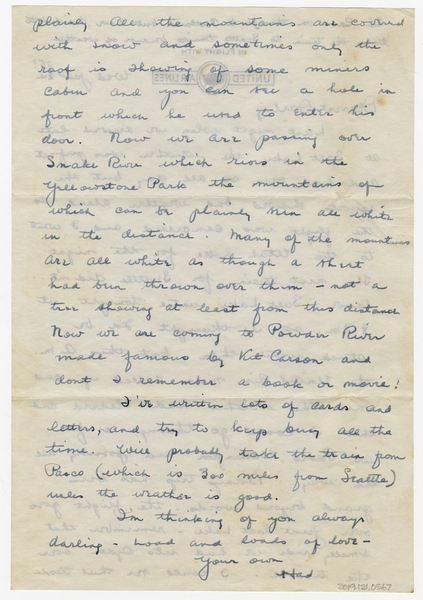 plainly all the mountains are covered
with snow and sometimes only the
roof is showing of some miners
cabin and you can see a hole in
front which he used to enter his
door. Now we are passing over
Snake River which rises in the
Yellowstone Park the mountains of
which can be plainly seen all white
in the distance. Many of the mountains
are all white as though a sheet
had been thrown over them - not a
tree showing at least from this distance
Now we are coming to Powder River
made famous by Kit Carson and
dont I remember a book or movie!
I've written lots of cards and
letters, and try to keep busy all the
time. Will probably take the train from
Pasco (which is 300 miles from Seattle)
unless the weather is good.
I'm thinking of you always
darling - and loads of love -
Your own
UNITED AIR LINES
2019.121.0567